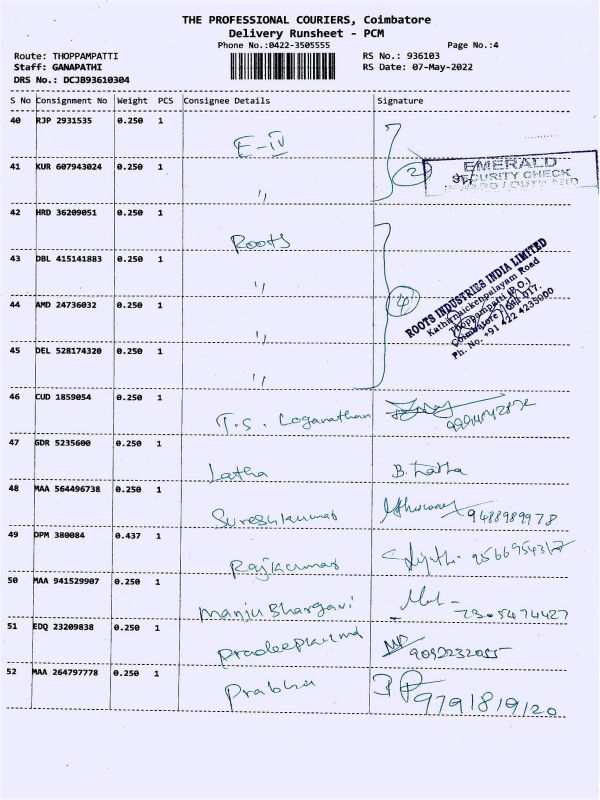 THE PROFESSIONAL COURIERS, Coimbatore
Delivery Runsheet - PCM
Phone No.:0422-3505555
Page No.:4
Route: THOPPAMPATTI
RS No.: 936103
Staff: GANAPATHI
RS Date: 07-May-2022
DRS No.: DCJB93610304
S No Consignment No Weight PCS Consignee Details Signature
40 RJP 2931535 0.250 1
E-IV
41 KUR 607943024 0.250 1
2
EMERALD
SECURITY CHECK
"
42 HRD 36209051 0.250 1
Roots
43 DBL 415141883 0.250 1
"
44 AMD 24736032 0.250 1
4
ROOTS INDUSTRIES INDIA LIMITED
Kathirnaickenpalayam Road
Thoppampatti (P.O.)
Coimbatore - 641 017.
Ph. No. +91 422 4235000
"
45 DEL 528174320 0.250 1
"
46 CUD 1859054 0.250 1
T.S. Loganathan
47 GDR 5235600 0.250 1
Latha B. Latha
48 MAA 564496738 0.250 1
Sureshkumar 9488989978
49 DPM 380084 0.437 1
Rajkumar
50 MAA 941529907 0.250 1
Manju Bhargavi
51 EDQ 23209838 0.250 1
Pradeepkumar
52 MAA 264797778 0.250 1
Prabhu 9791819120